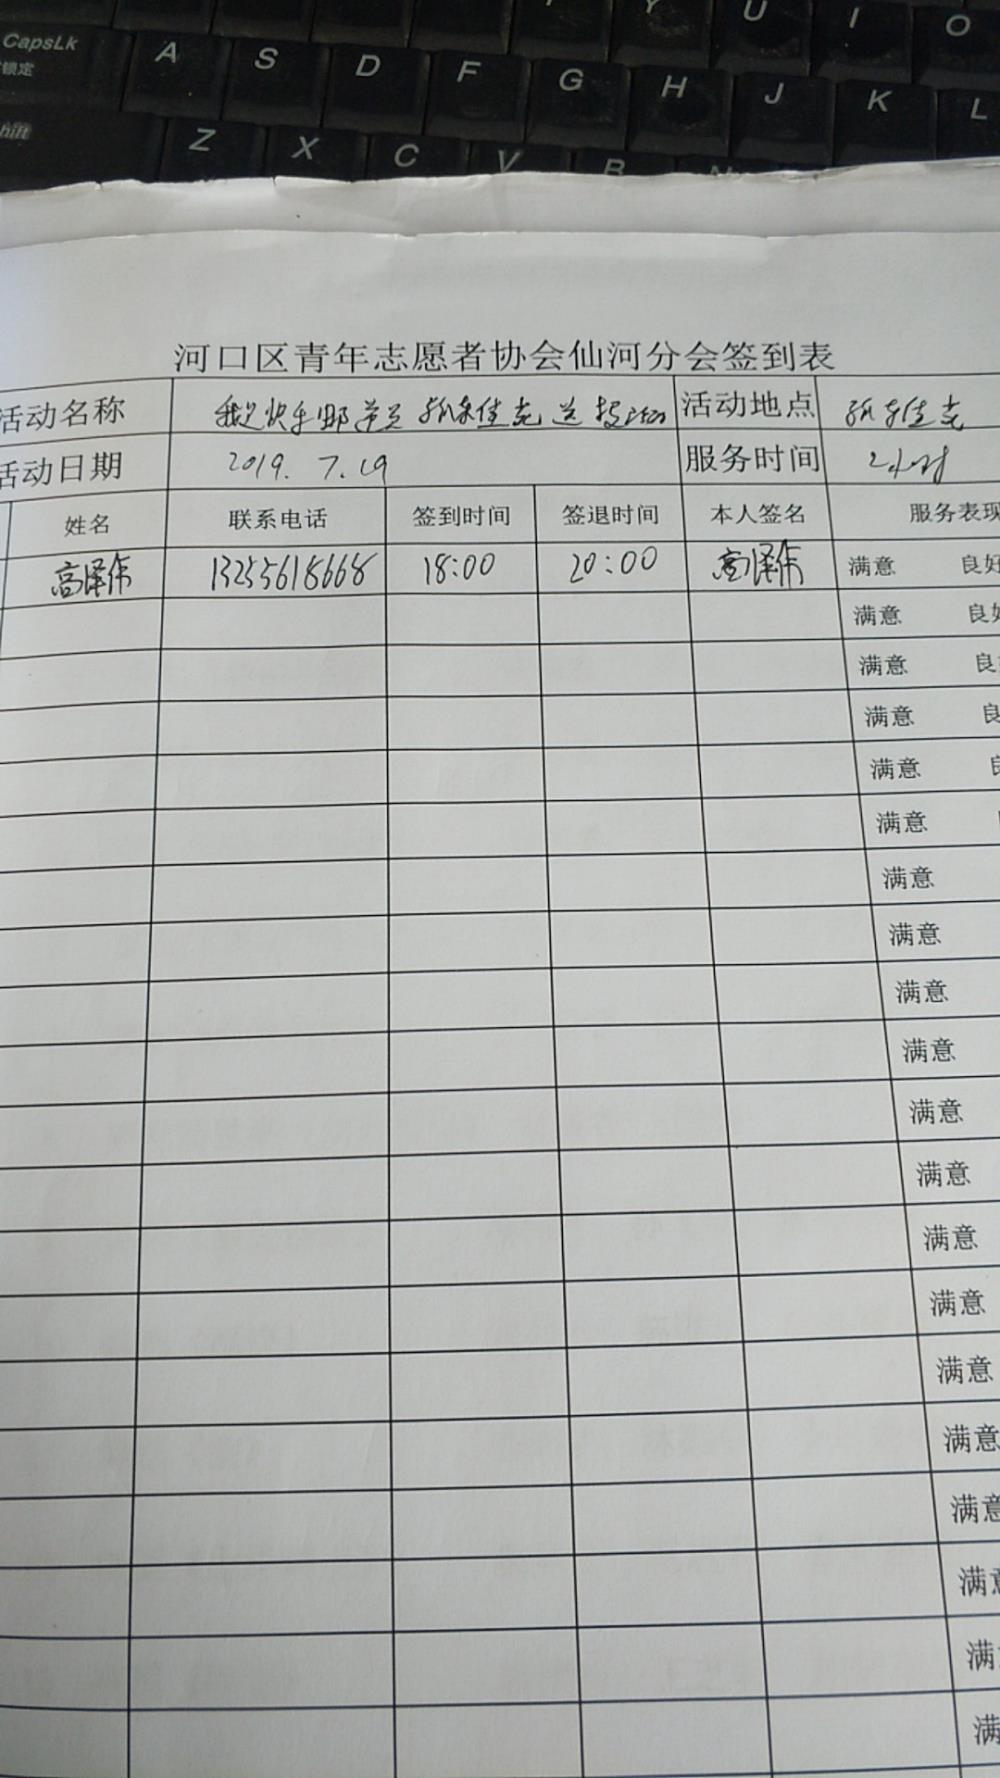 CapsLk A S D F G H J K L
锁定
Z X C V B N
U I O
河口区青年志愿者协会仙河分会签到表
活动名称 活动地点
活动日期 2019.7.19 服务时间 2小时
姓名 联系电话 签到时间 签退时间 本人签名 服务表现
高泽伟 13255618668 18:00 20:00 高泽伟 满意 良好
满意 良好
满意 良
满意 良
满意
满意
满意
满意
满意
满意
满意
满意
满意
满意
满意
满意
满意
满意
满
满